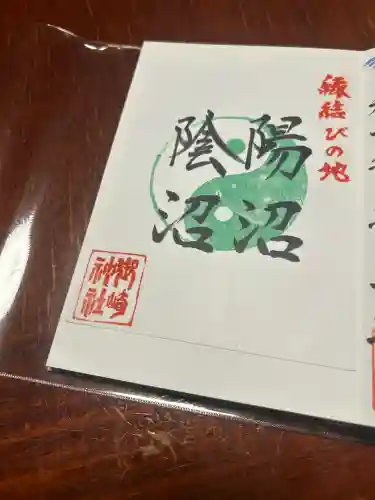 縁結びの地
陽沼
陰沼
御崎
神社